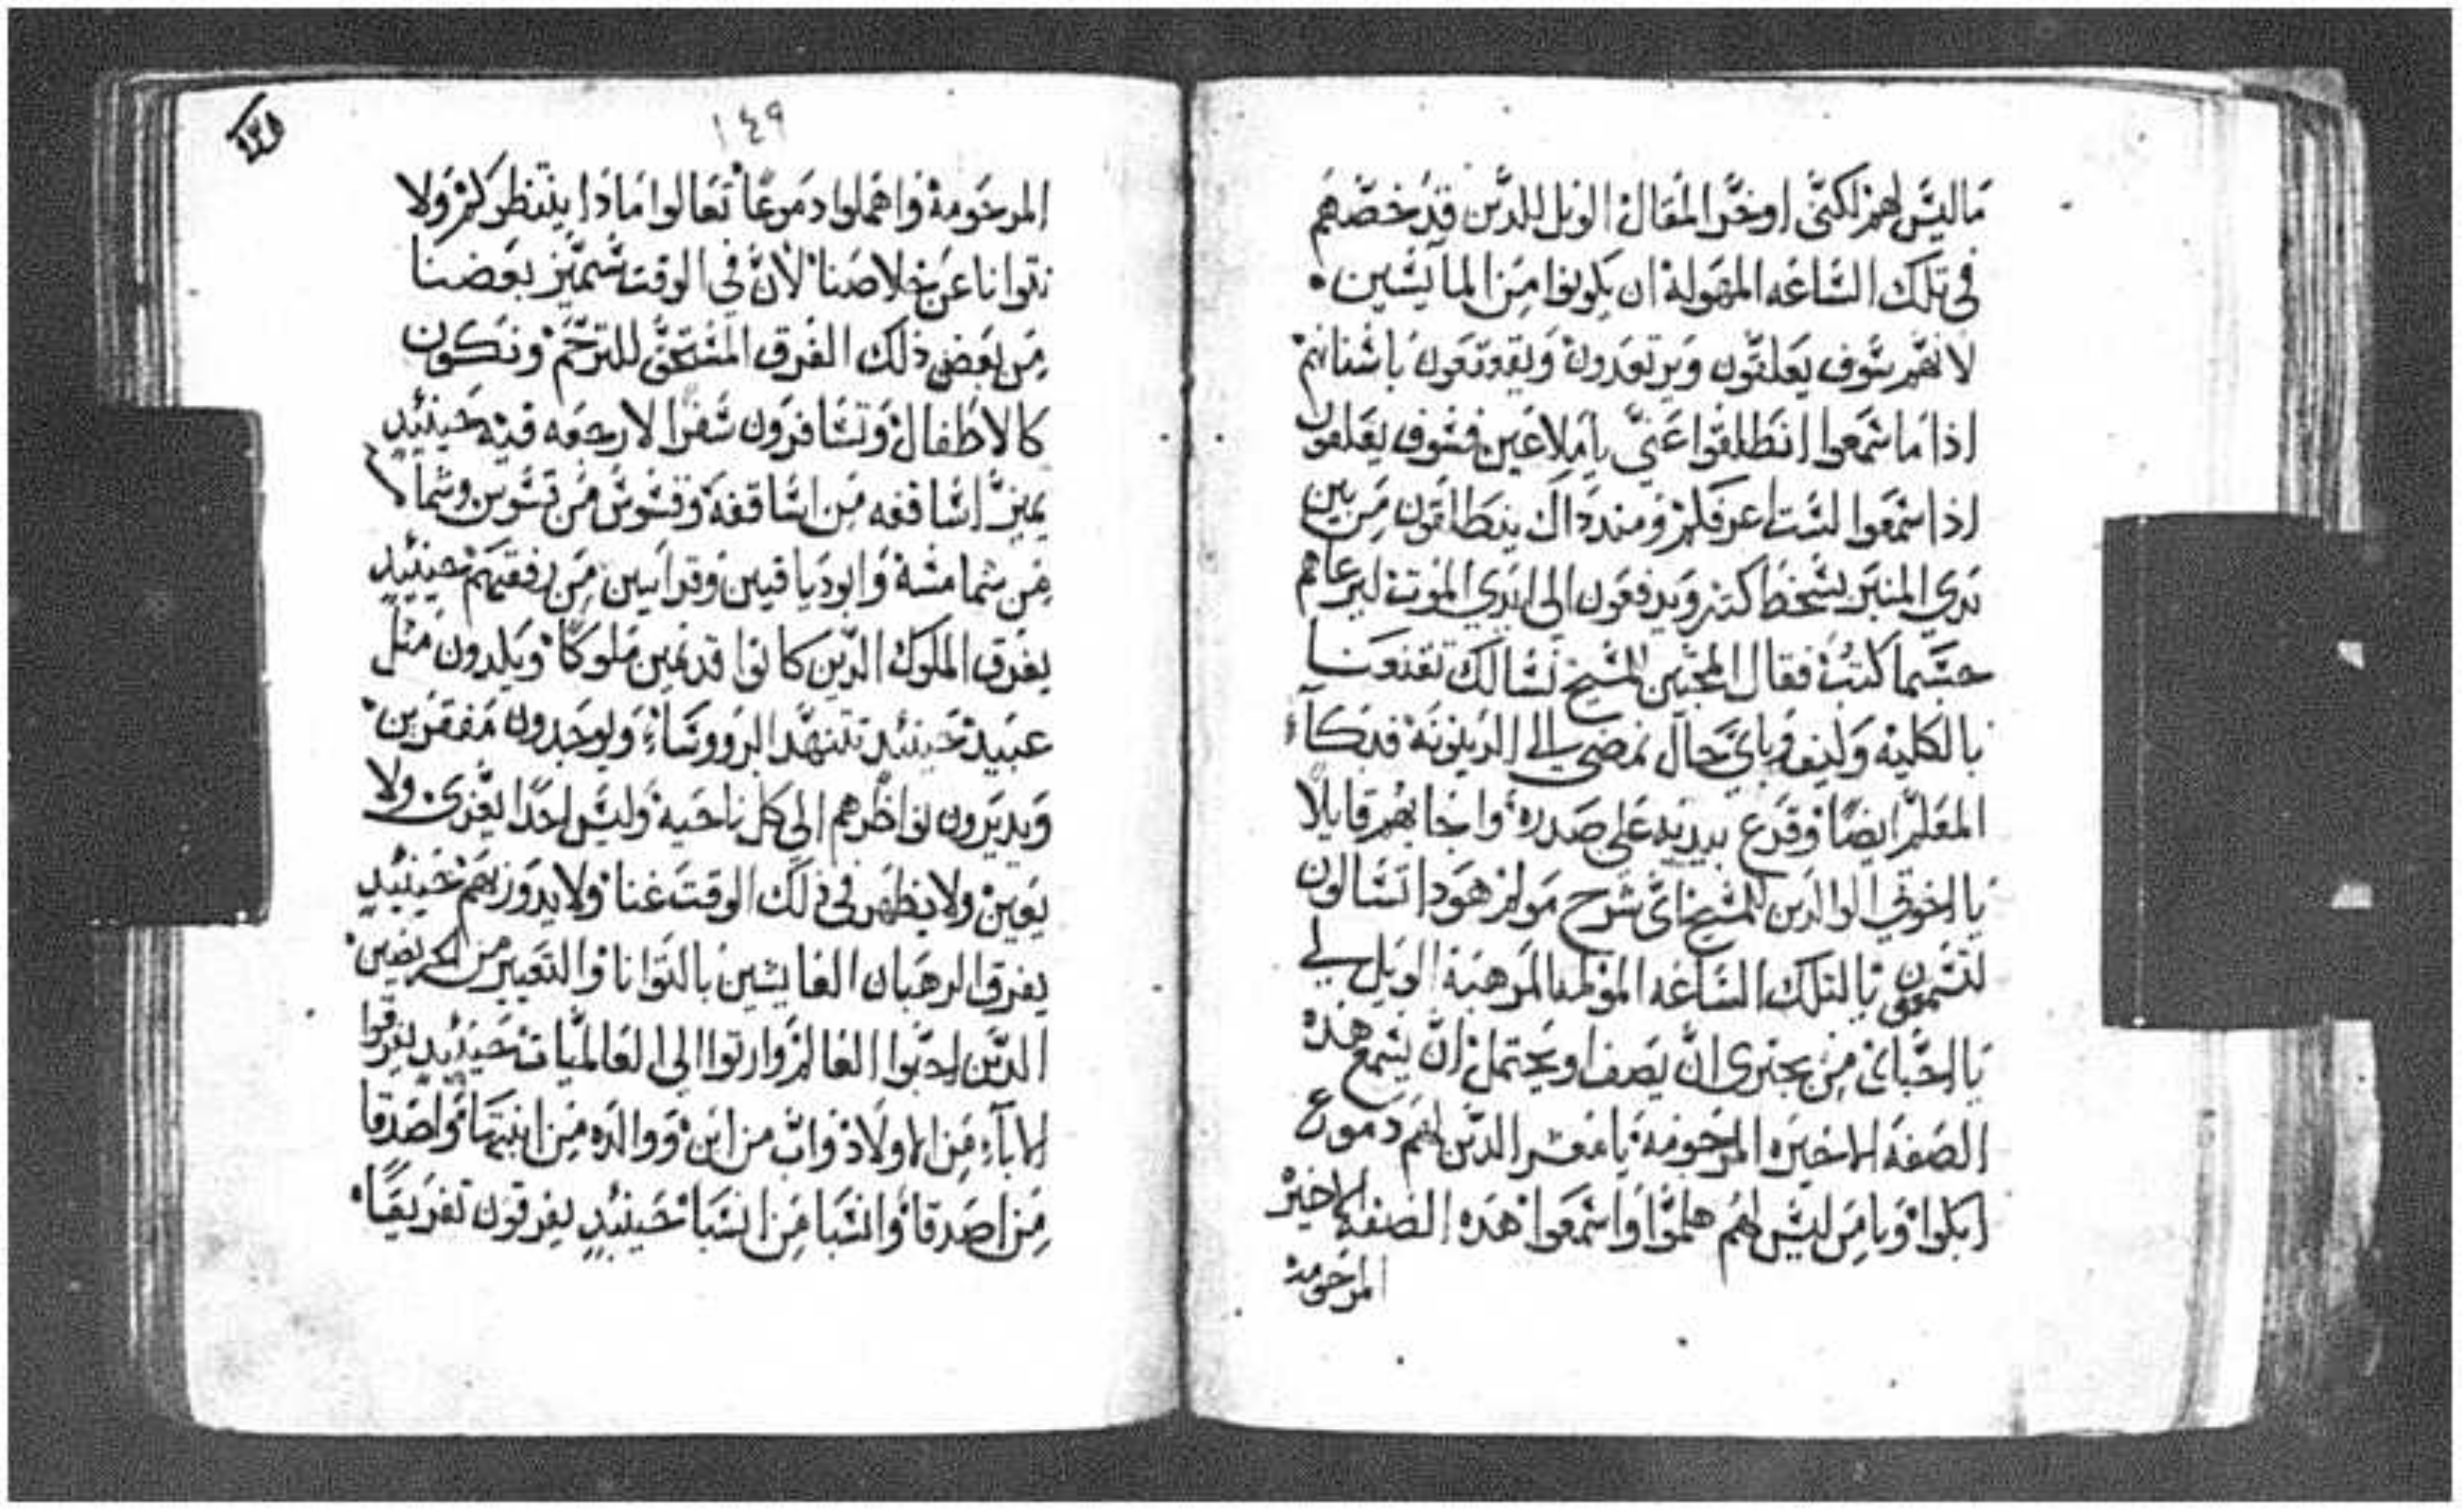 ما ليس لهم لكني اوخر المقال الويل للدين قد خصهم
في تلك الساعه المهولة ان يكونوا من المايسين
لانهم سوف يعلقون ويرتعدون ويقعقعون باسنانهم
اذا ما سمعوا انطلقوا عني يا ملاعين فسوف يقلقون
اذا سمعوا لست اعرفكم ومند داك ينطلقون من بين
يدي المنبر بسخط كتير ويدفعون الى ايدي الموت ليرعاهم
حسبما كتب فقال المحبين المسيح نسالك تقنعنا
بالكلية وكيف وباي حال نمضي الى الدينونة فبكا
المعلم ايضا وقرع بيديه على صدره واجابهم قايلا
يا اخوتي الوادين للمسيح اي شرح مولم هودا تسالون
لتسمعون يا لتلك الساعه المولمه المرهبة الويل لي
يا احباي من يجتري ان يصف او يحتمل ان يسمع هذه
الصفه الاخيره المرحومة يا معشر الدين لهم دموع
ابكوا ويا من ليس لهم هلموا واسمعوا هده الصفه الاخيره
المرحومة
١٤٩
المرحومة واهملوا دموعا تعالوا ماذا ينتظركم ولا
نتوانا عن خلاصنا لان في الوقت سيميز بعضنا
من بعض ذلك الفرق المستحق للترحم ونكون
كالاطفال وتسافرون سفرا لا رجعه فيه حينيد
يميز اساقفه من اساقفة وقسوس من قسوس وشما
من شمامسة وابودياقنين وقرايين من رفقتهم حينيد
يفرق الملوك الدين كانوا قديمين ملوكا ويلدون مثل
عبيد حينيد تتنهد الرووساء ويوجدون مفقرين
ويديرون نواظرهم الى كل ناحية وليس احدا يعزي ولا
يعين ولا يظهر في ذلك الوقت غنا ولا يدورنهم حينيد
يفرق الرهبان العايشين بالتوانا والتعيير من المريضين
الدين احبوا العالم وارتوا الى العالميات حينيد يفرقوا
الاباء من الاولاد واب من ابن ووالده من ابنتها واصدقا
من اصدقا وانسبا من انسبا حينيد يفرقون تفريقا